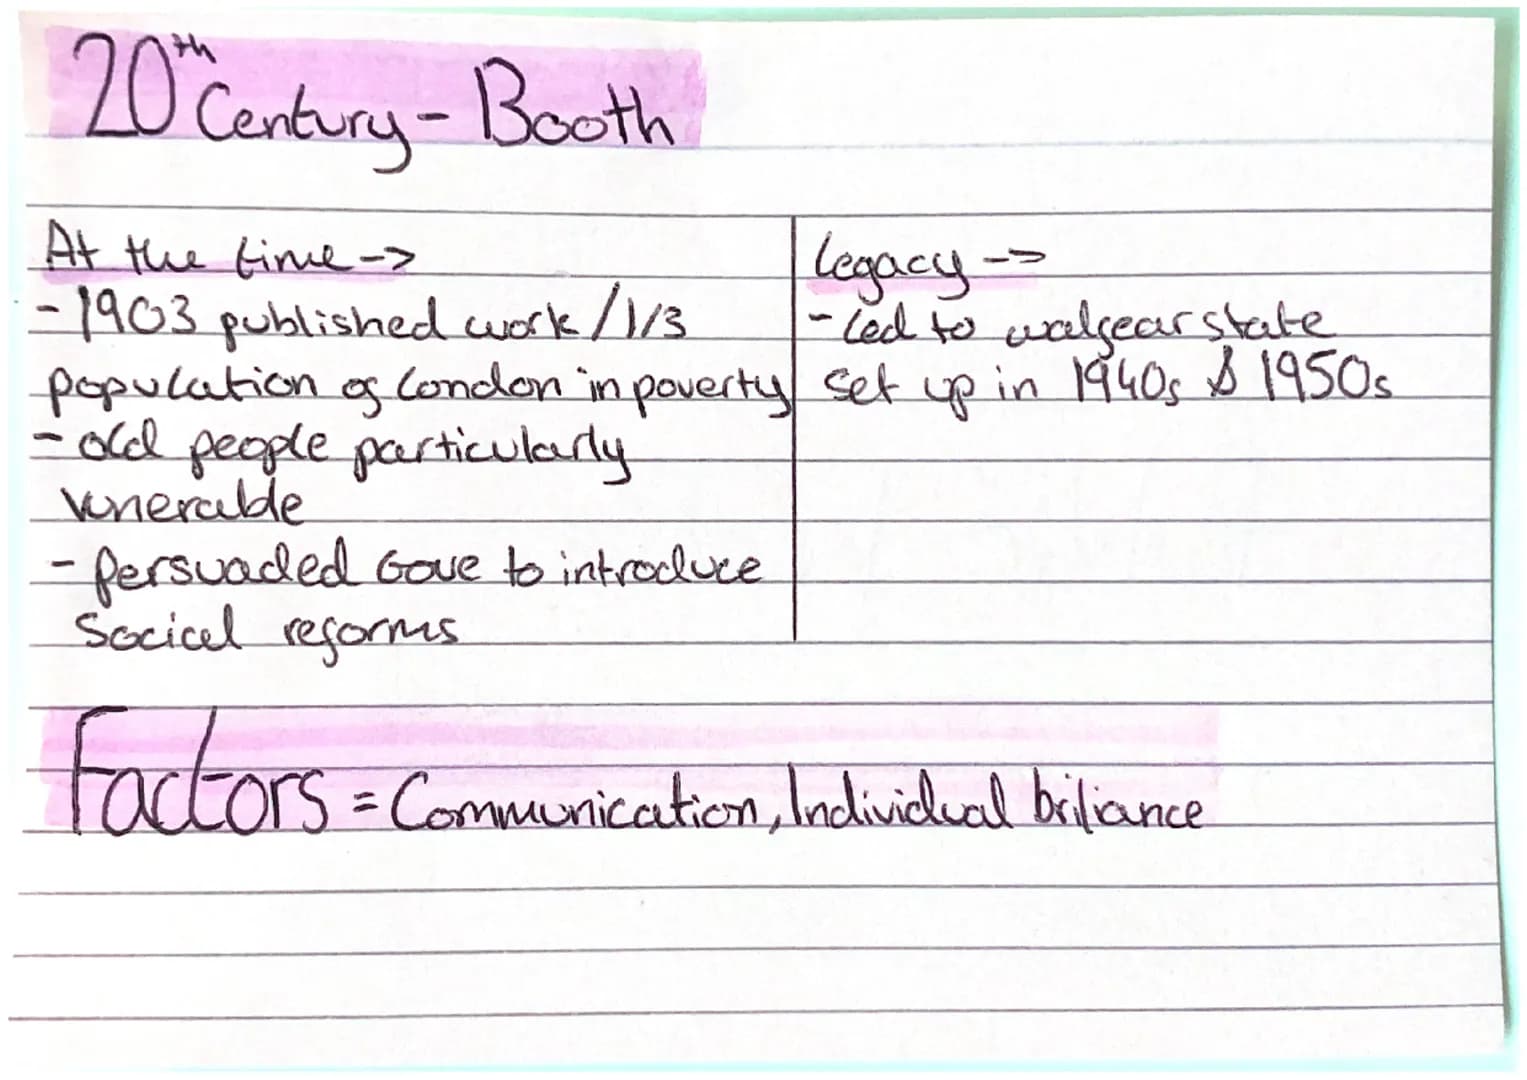 20th Century - Booth
At the time ->
- 1903 published work / 1/3
population of London in poverty
- old people particularly
vunerable
- Persuaded Gove to introduce
Social reforms
Legacy ->
- Led to walfear state
set up in 1940s & 1950s
Factors = Communication, Individual briliance